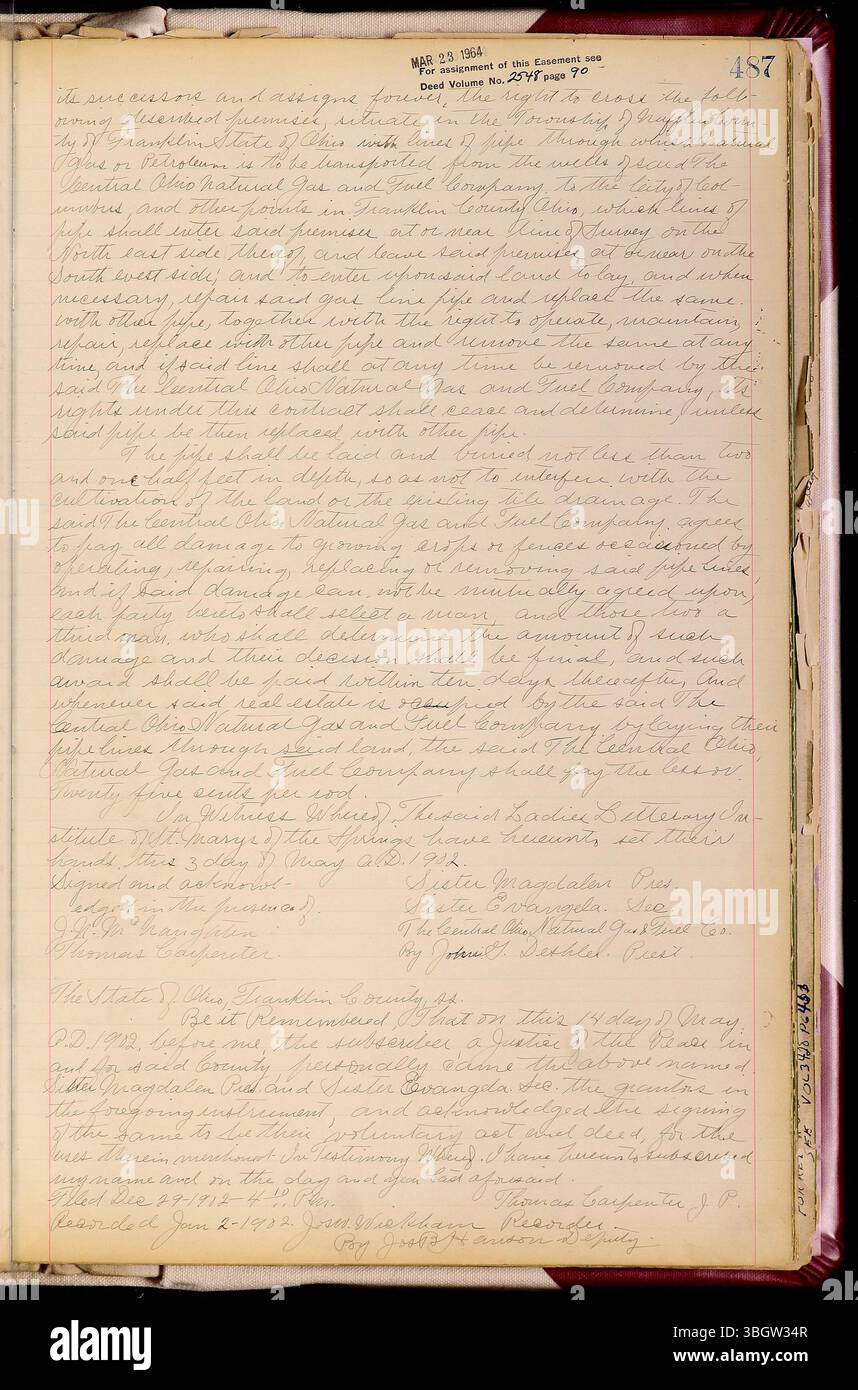 MAR 23 1964
For assignment of this Easement see
Deed Volume No. 2548 page 90
487
its successors and assigns forever, the right to cross the foll-
owing described premises, situate in the Township of Mifflin Coun-
ty of Franklin State of Ohio with lines of pipe through which natural
gas or Petroleum is to be transported from the wells of said The
Central Ohio Natural Gas and Fuel Company, to the City of Col-
umbus, and other points in Franklin County Ohio, which lines of
pipe shall enter said premises at or near line of Survey on the
North east side thereof, and leave said premises at or near on the
South west side, and to enter upon said land to lay, and when
necessary, repair said gas line pipe and replace the same
with other pipe, together with the right to operate, maintain,
repair, replace with other pipe and remove the same at any
time, and if said line shall at any time be removed by the
said The Central Ohio Natural Gas and Fuel Company, its
rights under this contract shall cease and determine, unless
said pipe be then replaced with other pipe.
The pipe shall be laid and buried not less than two
and one half feet in depth, so as not to interfere with the
cultivation of the land or the existing tile drainage. The
said The Central Ohio Natural Gas and Fuel Company, agrees
to pay all damage to growing crops or fences occasioned by
operating, repairing, replacing or removing said pipe lines,
and if said damage can not be mutually agreed upon,
each party hereto shall select a man, and those two a
third man, who shall determine the amount of such
damage and their decision shall be final, and such
award shall be paid within ten days thereafter, And
whenever said real estate is occupied by the said The
Central Ohio Natural Gas and Fuel Company by laying their
pipe lines through said land, the said The Central Ohio,
Natural Gas and Fuel Company shall pay the lessor
Twenty five cents per rod.
In Witness Whereof, The said Ladies Litterary In-
stitute of St. Marys of the Springs have hereunto set their
hands, this 3 day of May A.D. 1902.
Signed and acknowl-
edged in the presence of
J. N. McNaughten
Thomas Carpenter.
Sister Magdalen Pres.
Sister Evangela. Sec
The Central Ohio Natural Gas & Fuel Co.
By John G. Deshler. Prest.
The State of Ohio, Franklin County, ss.
Be it Remembered, That on this 14 day of May
A.D. 1902, before me, the subscriber, a Justice of the Peace in
and for said County, personally came the above named
Sister Magdalen Pres. and Sister Evangela. Sec. the grantors in
the foregoing instrument, and acknowledged the signing
of the same to be their voluntary act and deed, for the
uses therein mentioned. In Testimony Whereof, I have hereunto subscribed
my name and on the day and year last aforesaid.
Thomas Carpenter J. P.
Filed Dec 29-1902- 4 10 P.M.
Recorded Jan 2-1902. Jos. W. Wickham Recorder
By Jos B Hanson Deputy.
SEE VOL 3480 PG 483
alamy
Image ID: 3BGW34R
www.alamy.com